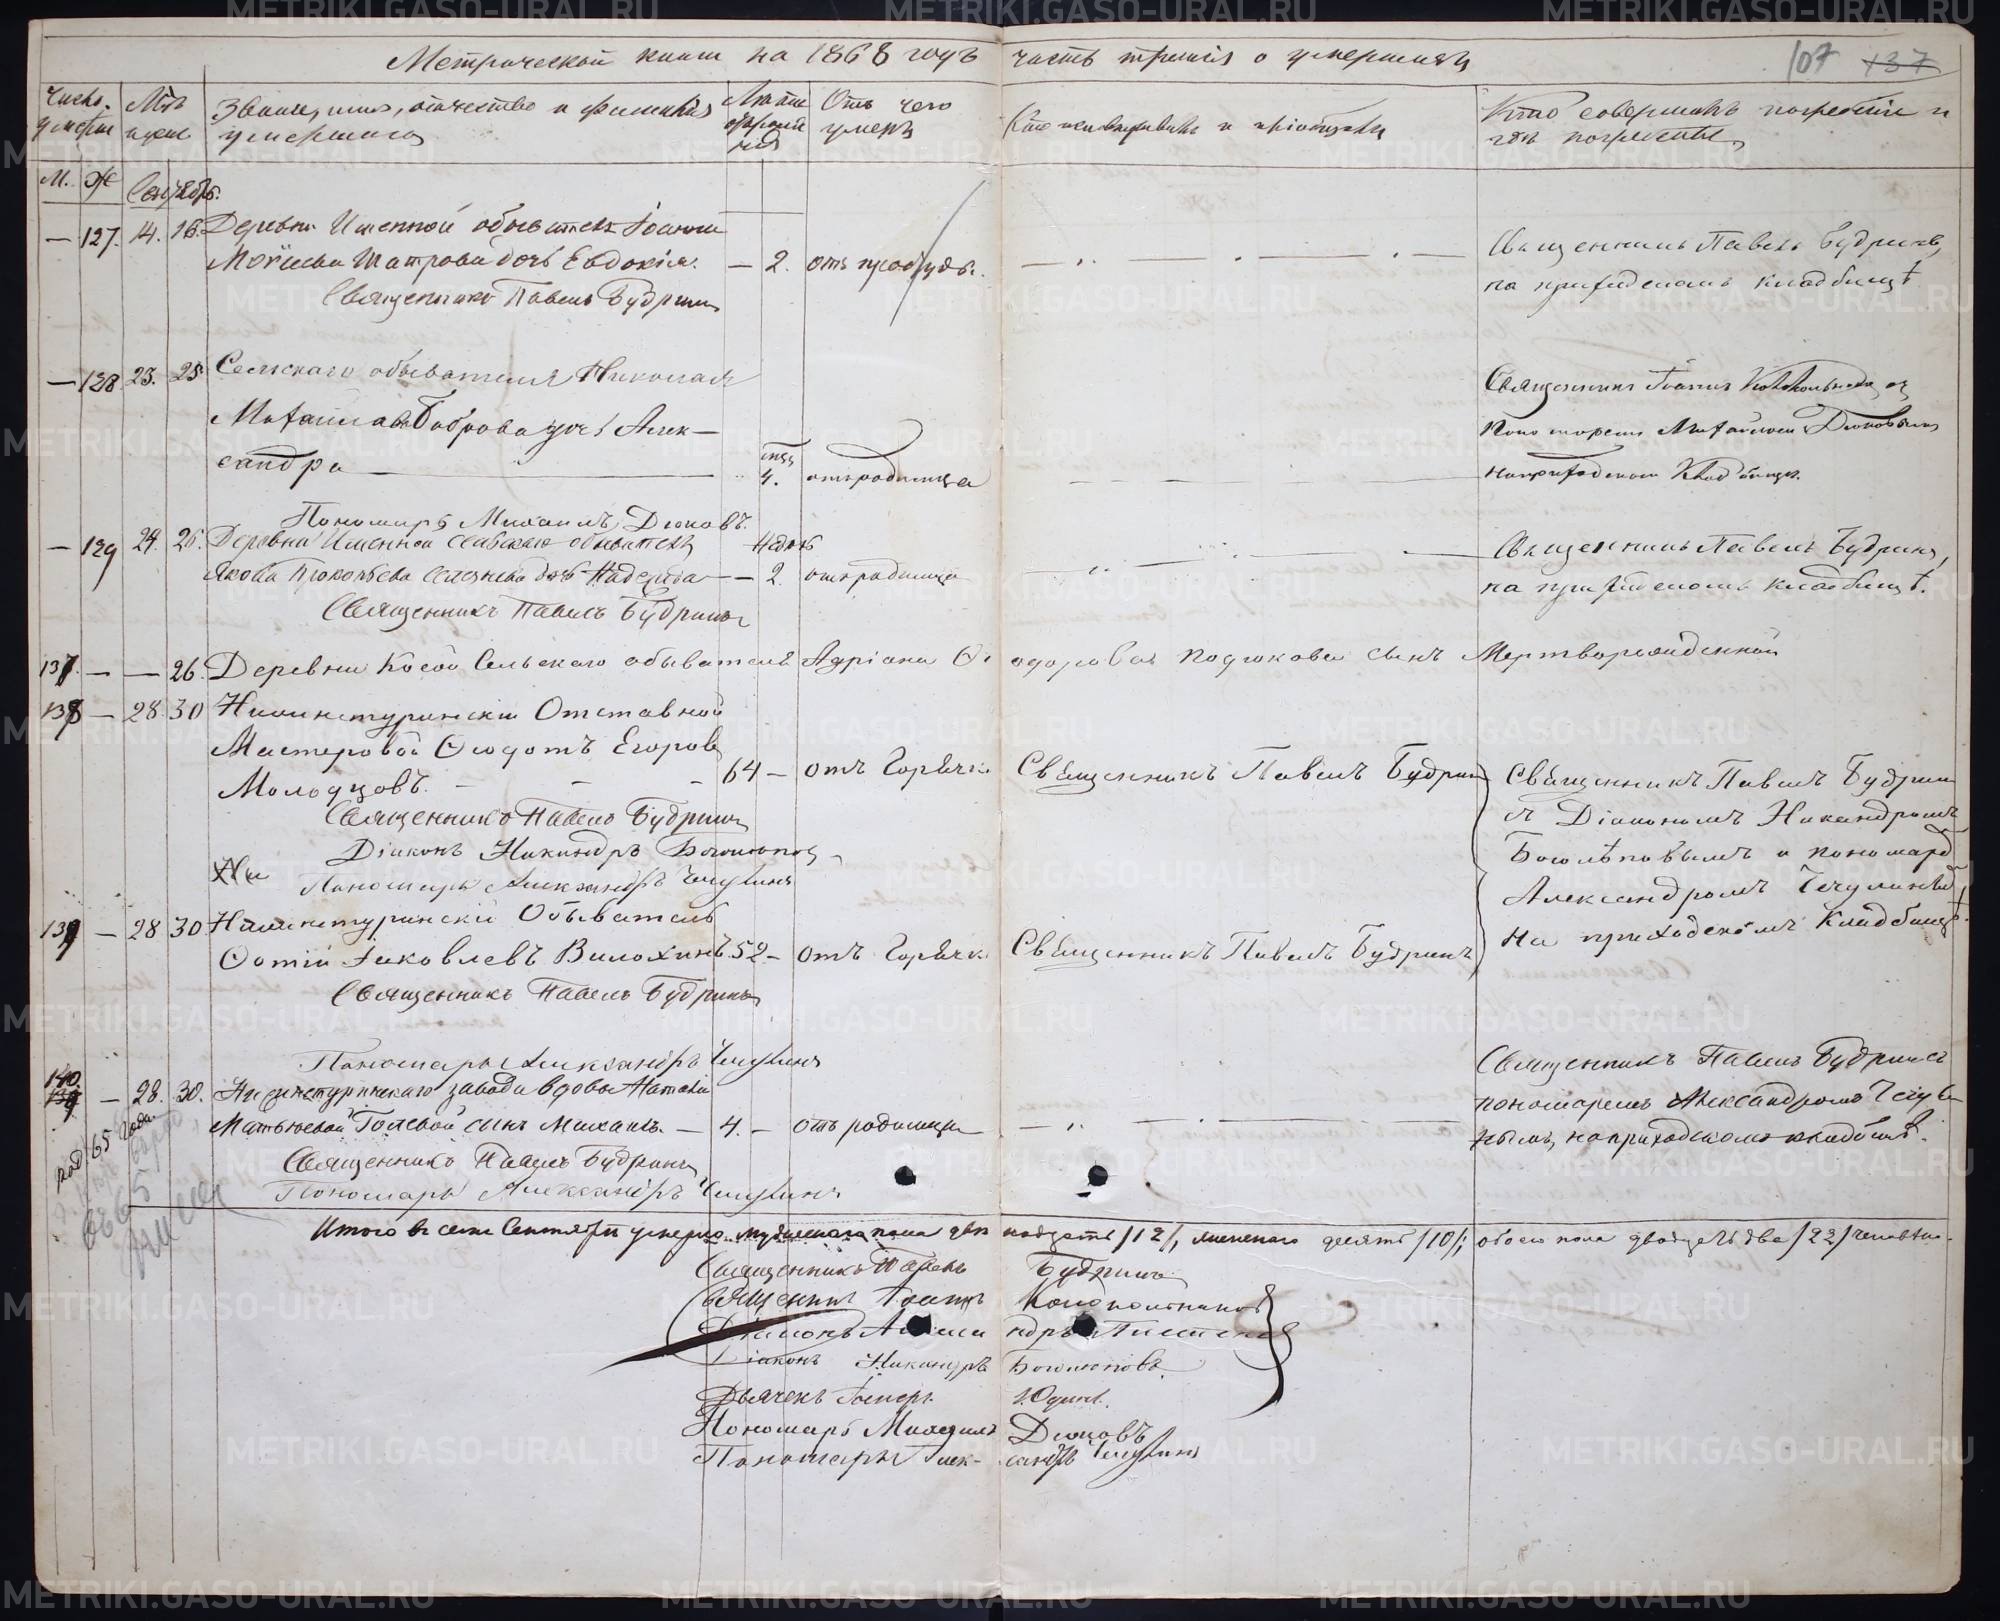 Метрической книги на 1868 годъ часть третія о умершихъ
107 137
Число умерш. Мѣс. и день Званіе, имя, отчество и фамилія умершаго Лѣта Отъ чего умеръ Кто исповѣдывалъ и пріобщалъ Кто совершалъ погребеніе и гдѣ погребены
М. Ж Сентябрь.
— 127. 14. 16. Деревни Именной обывателя Іоанна
Моисеева Шатрова дочь Евдокія. — 2. отъ простуды. Священникъ Павелъ Будринъ,
на приходскомъ кладбищѣ
Священникъ Павелъ Будринъ
— 128 23. 25. Сельскаго обывателя Николая Священникъ Іоаннъ Колокольниковъ съ
Михайлова Боброва дочь Алек- Пономаремъ Михаиломъ Дюковымъ
сандра 4. отъ родимца на приходскомъ Кладбищѣ.
Пономарь Михаилъ Дюковъ.
— 129 24. 26. Деревни Именной сельскаго обывателя недѣль Священникъ Павелъ Будринъ,
Якова Прокопьева дочь Надежда — 2. отъ родимца на приходскомъ кладбищѣ.
Священникъ Павелъ Будринъ
137. — — 26. Деревни Косой Сельскаго обывателя Адріана Ѳеодорова Подтокова сынъ Мертворожденной
138 — 28 30 Нижнетуринскій Отставной
Мастеровой Ѳеодотъ Егоровъ
Молодцовъ. 64 — отъ Горячк. Священникъ Павелъ Будринъ Священникъ Павелъ Будринъ
Священникъ Павелъ Будринъ съ Діакономъ Никандромъ
Діаконъ Никандръ Боголѣповъ Боголѣповымъ и пономаремъ
Пономарь Александръ Чечулинъ Александромъ Чечулинымъ
139 — 28 30 Нижнетуринскій Обыватель на приходскомъ Кладбищѣ.
Ѳотій Яковлевъ Вилохинъ 52 — отъ Горячк. Священникъ Павелъ Будринъ
Священникъ Павелъ Будринъ
Пономарь Александръ Чечулинъ
140. 139 — 28. 30. Нижнетуринскаго завода вдовы Наталіи Священникъ Павелъ Будринъ съ
Матвѣевой сынъ Михаилъ. — 4. — отъ родимца пономаремъ Александромъ Чечули-
нымъ, на приходскомъ кладбищѣ.
Священникъ Павелъ Будринъ
Пономарь Александръ Чечулинъ
род. 65 года
Итого въ семъ Сентябрѣ умерло мужескаго пола двѣнадцать /12/, женскаго десять /10/; обоего пола двадцать два /22/ человѣка.
Священникъ Павелъ Будринъ
Священникъ Іоаннъ Колокольниковъ
Діаконъ
Діаконъ Никандръ Боголѣповъ.
Дьячекъ Юдинъ.
Пономарь Михаилъ Дюковъ
Пономарь Александръ Чечулинъ
METRIKI.GASO-URAL.RU